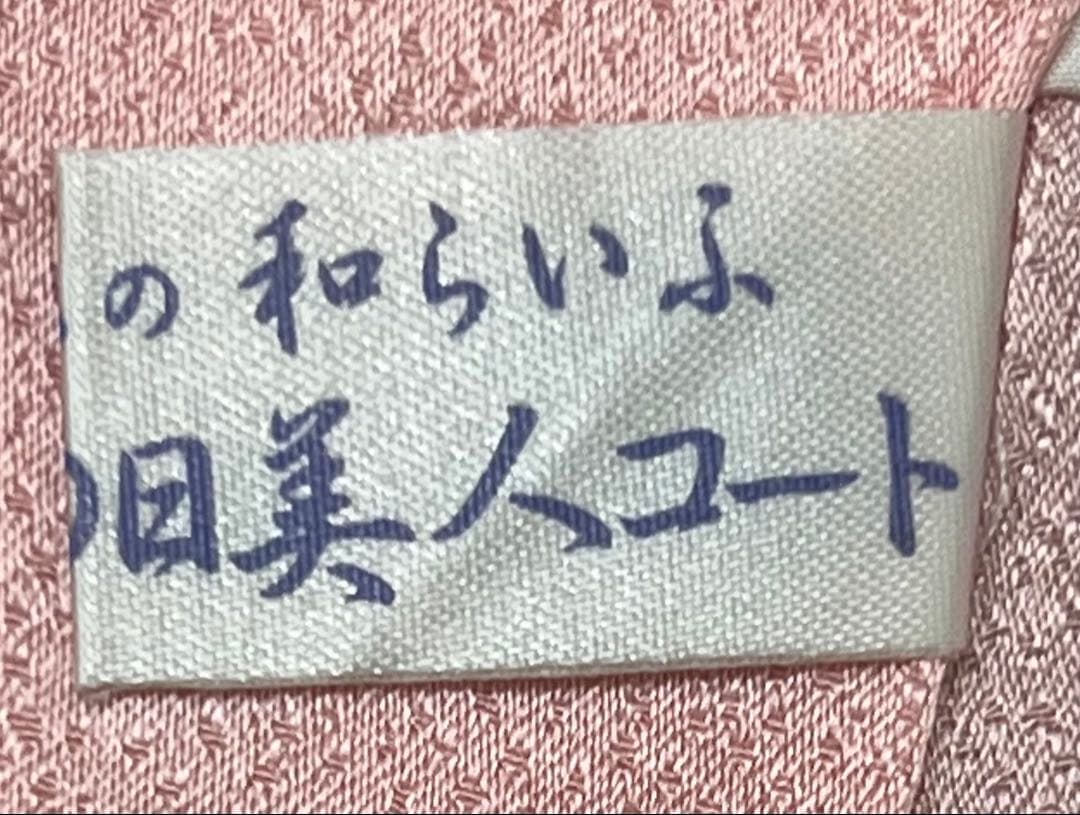 の 和らいふ
の日美人コート